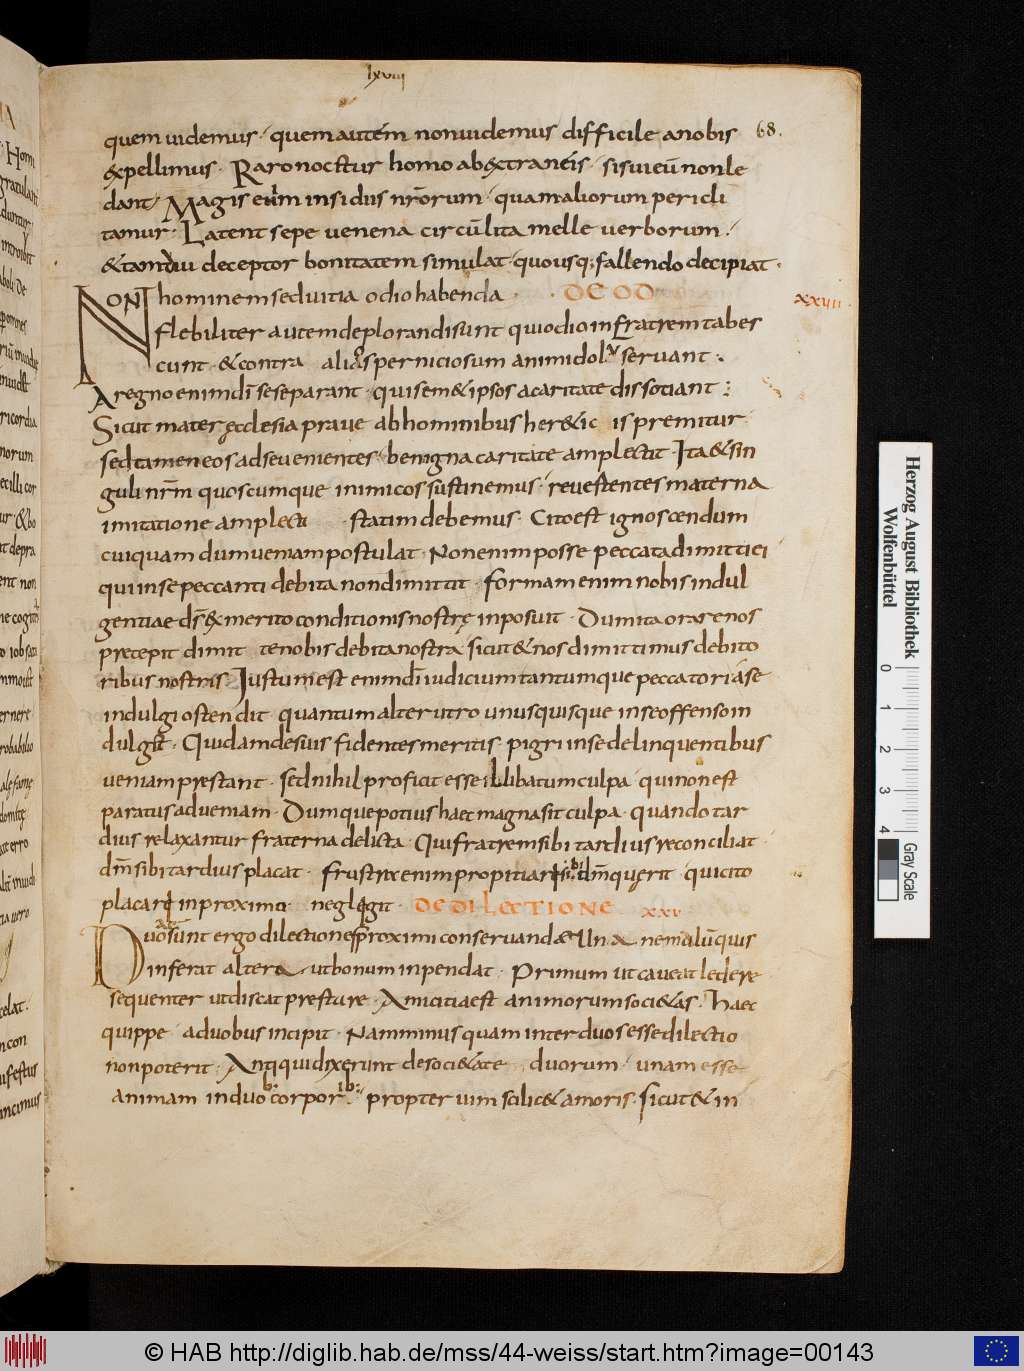 lxviii
quem uidemus · quem autem nonuidemus difficile anobis 68.
expellimus · Raro nocetur homo ab extraneis · sisui eū nonle
dant · Magis enim insidiis nr̄orum · quam aliorum pericli
tamur · Latent sepe uenena circūlita melle uerborum ·
& tamdiu deceptor bonitatem simulat · quousq; fallendo decipiat ·
NON hominem sed uitia odio habenda · · DE OD xxiiii
Flebiliter autem deplorandi sunt qui odio in fratrem tabes
cunt · & contra alios perniciosum animi dolū seruant :
A regno enim dī se separant · qui sem&ipsos a caritate dissotiant :
Sicut mater ecclesia praue ab hominibus her&ic is premitur
sed tamen eos ad se uenientes · benigna caritate amplectit · Ita & sin
guli nr̄m quoscumque inimicos sustinemus · reuertentes materna
imitatione amplecti statim debemus · Cito est ignoscendum
cuiquam dum ueniam postulat · Non enim posse peccata dimitti ei
qui in se peccanti debita non dimittit · formam enim nobis indul
gentiae ds̄ ex merito conditionis nostrę inposuit · Dum ita orare nos
precepit dimit te nobis debita nostra sicut & nos dimittimus debito
ribus nostris · Iustum est enim dī iudicium tantumque peccatori a se
indulgi ostendit quantum alterutro unusquisque in se offenso in
dulg&t · Quidam de suis fidentes meritis · pigri in se delinquentibus
ueniam prestant · sed nihil proficit esse illibatum culpa · qui non est
paratus ad ueniam · Dumque potius haec magna sit culpa · quando tar
dius relaxantur fraterna delicta · Qui fratrem sibi tardius reconciliat ·
dm̄ sibi tardius placat · frustra enim propitiari sibi dm̄ querit qui cito
placari in proximo neglegit · DE DILECTIONE xxv
Duo sunt ergo dilectione proximi conseruandae Un a ne malū quis
inferat altera · ut bonum inpendat · Primum ut caueat ledere
sequenter ut discat prestare · Amicitia est animorum soci&as · haec
quippe a duobus incipit · Nam minus quam inter duos esse dilectio
non poterit · Antiqui dixerunt de soci&ate duorum · unam esse
animam in duobus corporibus · propter uim scilic& amoris · sicut & in
Herzog August Bibliothek
Wolfenbüttel
0 1 2 3 4
Gray Scale
© HAB http://diglib.hab.de/mss/44-weiss/start.htm?image=00143